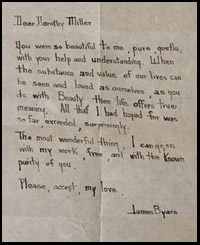 Dear Dorothy Miller
You were so beautiful to me, pure, gentle,
with your help and understanding. When
the substance and value of our lives can
be seen and loved as ourselves, as you
do with Beauty then life offers true
meaning. All that I had hoped for was
so far exceeded, surprisingly.
The most wonderful thing, I can go on
with my work, free, and with the known
purity of you.
Please, accept, my love.
James Byars